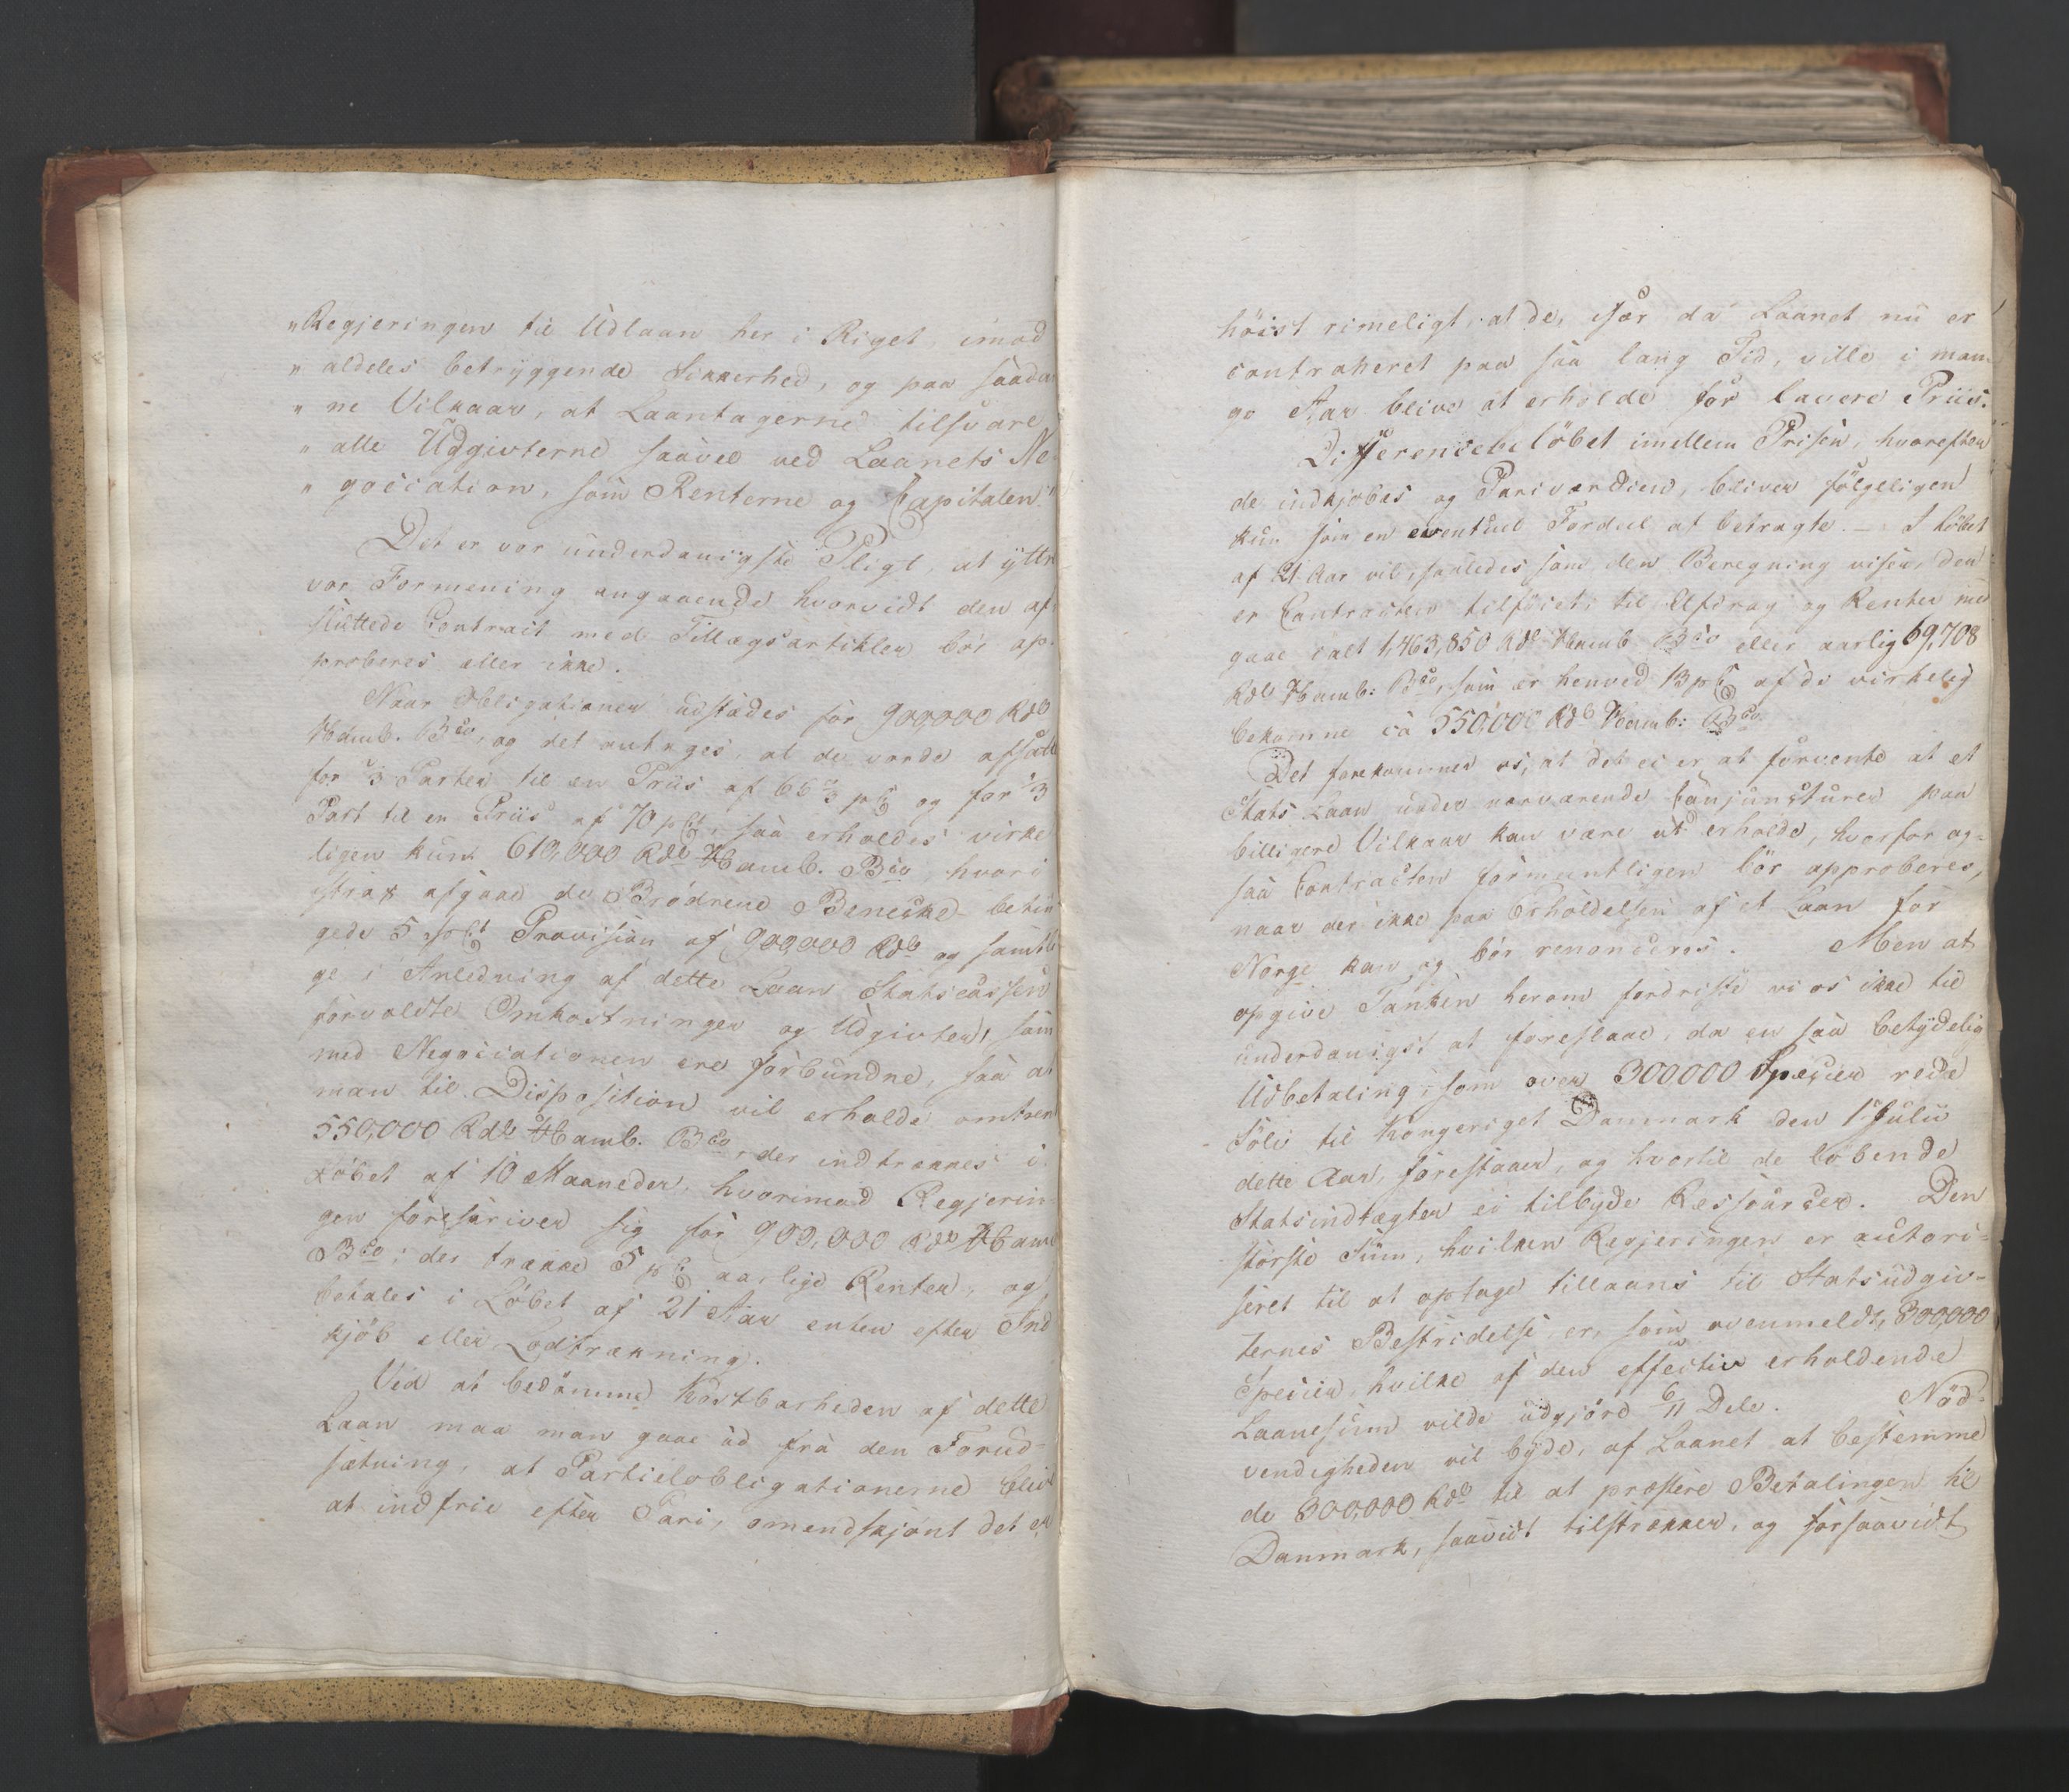 "Regjeringen til Udlaan her i Riget, imod
" aldeles betryggende Sikkerhed, og paa saadan
" ne Vilkaar, at Laantagerne tilsvare
" alle Udgivterne saavel ved Laanets Ne-
" gociation, som Renterne og Capitalen."
Det er vor underdanigste Pligt, at yttre
vor Formening angaaende hvorvidt den af-
sluttede Contract med Tillægsartikler bör ap-
proberes eller ikke.
Naar Obligationer udstædes for 900,000 Rdlr
Hamb. Bco, og det antages, at de vorde afsatte
for 2/3 Parter til en Priis af 66 2/3 pCt og for 1/3
Part til en Priis af 70 pCt, saa erholdes virke
ligen kun 610,000 Rdlr Hamb. Bco, hvori
strax afgaae de Brödrene Benecke betin
gede 5 pCt Provision af 900,000 Rdlr og samtli
ge i Anledning af dette Laan Statscassen
forvoldte Omkostninger og Udgivter, som
med Negociationen ere forbundne, saa at
man til Disposition vil erholde omtrent
550,000 Rdlr Hamb. Bco, der indtrækkes i
Löbet af 10 Maaneder, hvorimod Regjerin
gen forskriver sig for 900,000 Rdlr Hamb
Bco; der trække 5 pCt aarlige Renter, og
betales i Löbet af 21 Aar enten efter Ind
kjöb eller Lodtrækning.
Ved at bedömme Kostbarheden af dette
Laan maa man gaae ud fra den Forud-
sætning, at Partielobligationerne blive
at indfrie efter Pari, omendskjönt det er
höist rimeligt, at de, især da Laanet nu er
contraheret paa saa lang Tid, ville i man-
ge Aar blive at erholde for lavere Priis.
Differencebelöbet imellem Prisen, hvorefter
de indkjöbes og Pariværdien, bliver fölgeligen
kun som en eventuel Fordeel at betragte. — I Löbet
af 21 Aar vil, saaledes som den Beregning viser, der
er Contracten tilföiet, til Afdrag og Renter med
gaae ialt 1,463,850 Rdlr Hamb Bco eller aarlig 69,708
Rdlr Hamb: Bco, som er henved 13 pCt af de virkelig
bekomne ca 550,000 Rdlr Hamb: Bco.
Det forekommer os, at det ei er at forvente at et
Stats Laan under nærværende Conjuncturer paa
billigere Vilkaar kan være at erholde, hvorfor og-
saa Contracten formentligen bör approberes,
naar der ikke paa Erholdelsen af et Laan for
Norge kan og bör renonceres. Men at
opgive Tanken herom fordriste vi os ikke til
underdanigst at foreslaae, da en saa betydelig
Udbetaling, som over 300000 Species rede
Sölv til Kongeriget Danmark den 1 Julii
dette Aar, forestaaer, og hvortil de löbende
Statsindtægter ei tilbyde Ressourcer. Den
störste Sum, hvilken Regjeringen er autori-
seret til at optage tillaans til Statsudgiv-
ternes Bestridelse, er, som ovenmeldt, 300,000
Species, hvilke af den effectiv erholdende
Laanesum vilde udgjöre 6/11 Dele. Nöd-
vendigheden vil byde, af Laanet at bestemme
de 300,000 Rdlr til at præstere Betalingen til
Danmark, saavidt tilstrækker, og forsaavidt